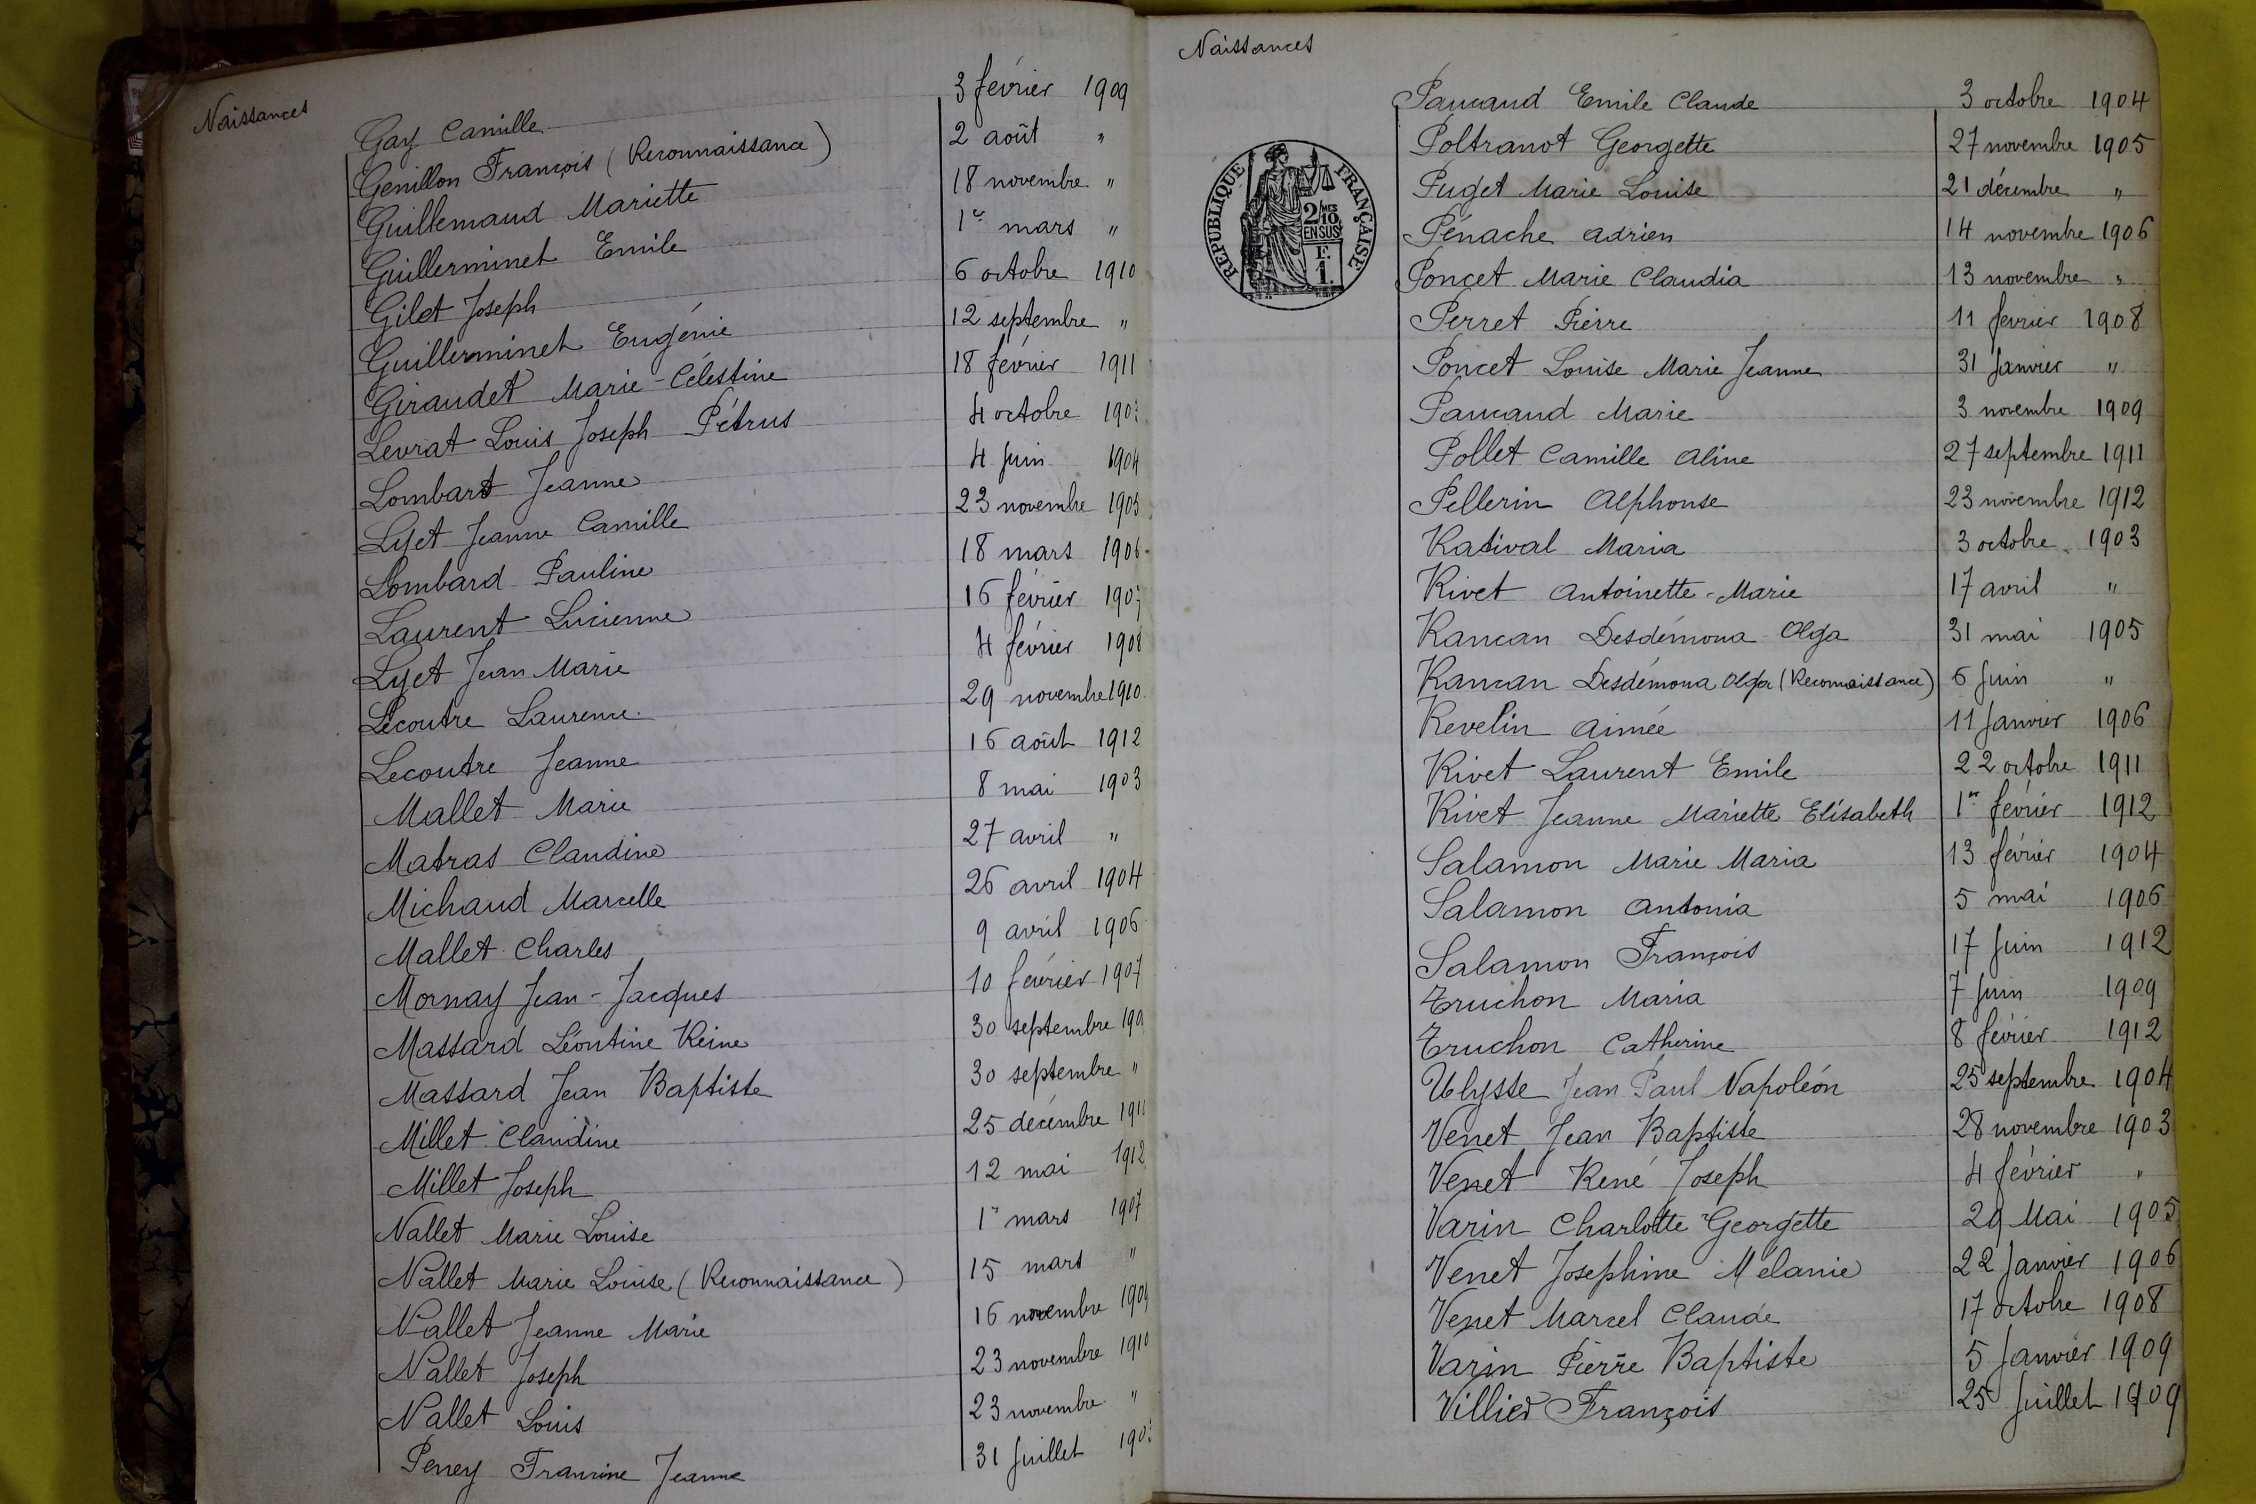 Naissances
Gay Camille 3 février 1909
Genillon François (Reconnaissance) 2 août "
Guillemaud Mariette 18 novembre "
Guillerminet Emile 1er mars "
Gilet Joseph 6 octobre 1910
Guillerminet Eugénie 12 septembre "
Giraudet Marie-Célestine 18 février 1911
Levrat Louis Joseph Pétrus 4 octobre
Lombart Jeanne 4 juin 1904
Lyet Jeanne Camille 23 novembre 1905
Lombard Pauline 18 mars 1906
Laurent Lucienne 16 février 1907
Lyet Jean Marie 4 février 1908
Lecoutre Laurence 29 novembre 1910
Lecoutre Jeanne 16 août 1912
Mallet Marie 8 mai 1903
Matras Claudine 27 avril "
Michaud Marcelle 26 avril 1904
Mallet Charles 9 avril 1906
Mornay Jean-Jacques 10 février 1907
Massard Léontine Reine 30 septembre
Massard Jean Baptiste 30 septembre "
Millet Claudine 25 décembre
Millet Joseph 12 mai 1912
Nallet Marie Louise 1er mars 1907
Nallet Marie Louise (Reconnaissance) 15 mars "
Nallet Jeanne Marie 16 novembre 1909
Nallet Joseph 23 novembre 1910
Nallet Louis 23 novembre "
Peney Francine Jeanne 31 juillet
Naissances
RÉPUBLIQUE FRANÇAISE
2/10 MES
EN SUS
F.
1.
Paucaud Emile Claude 3 octobre 1904
Poltranot Georgette 27 novembre 1905
Puget Marie Louise 21 décembre "
Pénache Adrien 14 novembre 1906
Poncet Marie Claudia 13 novembre "
Perret Pierre 11 février 1908
Poncet Louise Marie Jeanne 31 janvier "
Paucaud Marie 3 novembre 1909
Pollet Camille Aline 27 septembre 1911
Pellerin Alphonse 23 novembre 1912
Rativat Maria 3 octobre 1903
Rivet Antoinette-Marie 17 avril "
Rancan Desdémona Olga 31 mai 1905
Rancan Desdémona Olga (Reconnaissance) 6 juin "
Revelin Aimée 11 janvier 1906
Rivet Laurent Emile 22 octobre 1911
Rivet Jeanne Mariette Elisabeth 1er février 1912
Salamon Marie Maria 13 février 1904
Salamon Antonia 5 mai 1906
Salamon François 17 juin 1912
Truchon Maria 7 juin 1909
Truchon Catherine 8 février 1912
Ulysse Jean Paul Napoléon 25 septembre 1904
Venet Jean Baptiste 28 novembre 1903
Venet René Joseph 4 février "
Varin Charlotte Georgette 29 Mai 1905
Venet Josephine Mélanie 22 janvier 1906
Venet Marcel Claude 17 octobre 1908
Varin Pierre Baptiste 5 janvier 1909
Villier François 25 juillet 1909